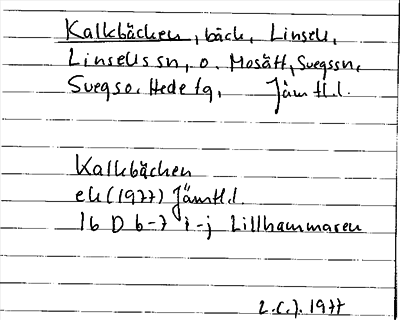 Kalkbäcken, bäck, Linsell,
Linsells sn, o. Mosätt, Svegssn,
Svegs o. Hede tg, Jämtl.l.
Kalkbäcken
ek (1977) Jämtl.l.
16 D 6-7 i-j Lillhammaren
L.C.J. 1977